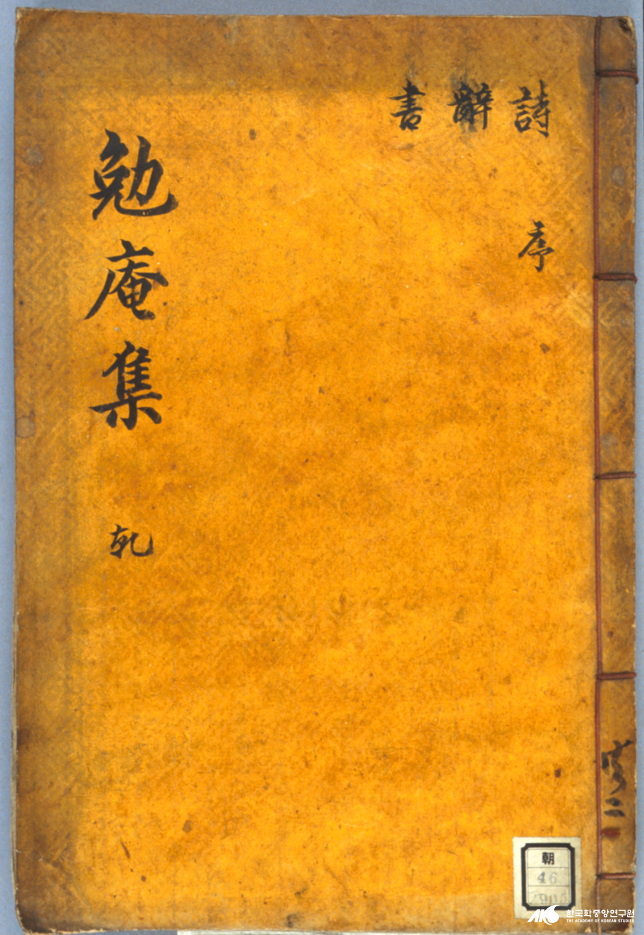 詩
辭
書
序
勉庵集 乹
共二
朝
46
한국학중앙연구원
THE ACADEMY OF KOREAN STUDIES